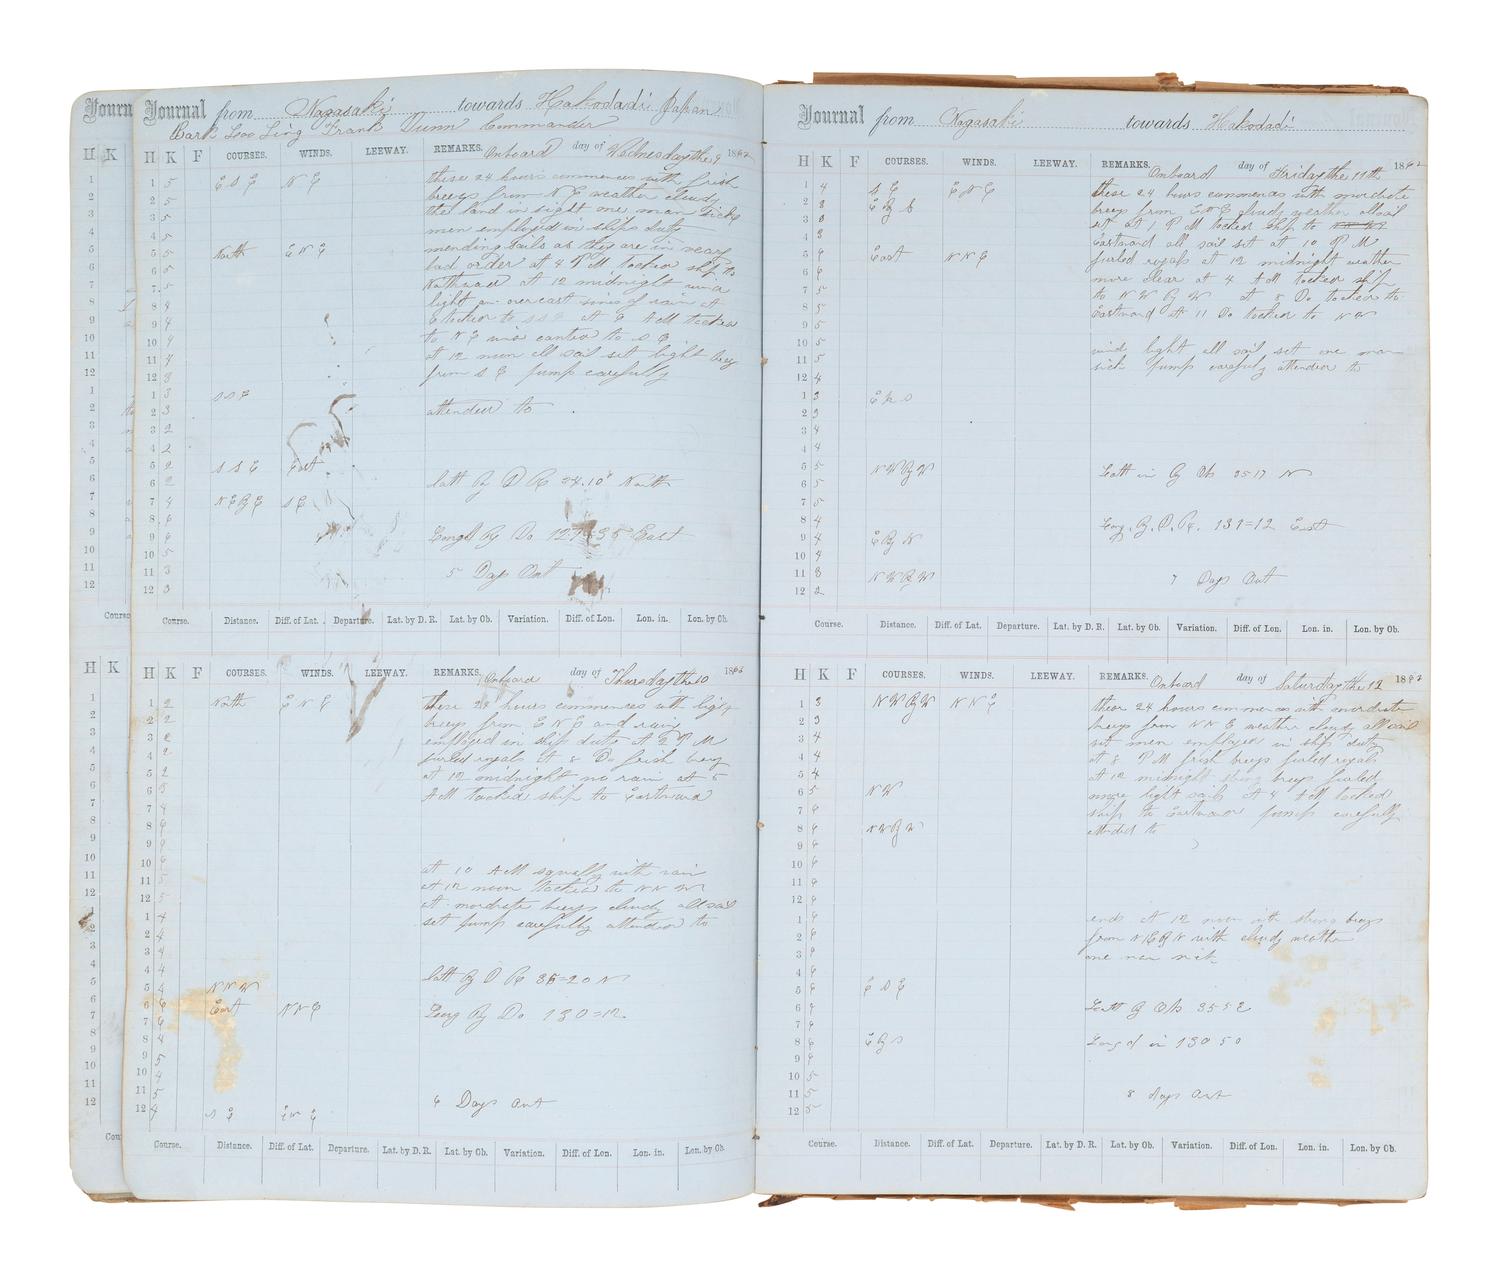 Journal from Nagasaki towards Hakodadi Japan
Bark Loo Ling Frank Dunn Commander
H K F COURSES. WINDS. LEEWAY. REMARKS. Onboard day of Wednesday the 9 1862
1 5 E S E N E these 24 hours commences with frish
2 5 breeys from N E weather cloudy
3 5 the land in sight one man sick
4 5 men employed in ships duty
5 5 North E N E mending sails as they are in very
6 5 bad order at 4 P M tacked ship to
7 5 Nothward at 12 midnight wind
8 4 light an overcast sines of rain at
9 4 tacked to S S E at 6 A M tacked
10 4 to N E wind canted to S E
11 4 at 12 noon all sail set light brey
12 3 from S E pump carefully
1 3 S S E
2 3 attended to
3 2
4 2
5 2 S S E East
6 2 latt By D R 34.10 North
7 4 N E B E S E
8 6
9 6 Longd By Do 129 35 East
10 5
11 3 5 Days Out
12 3
Course. Distance. Diff. of Lat. Departure. Lat. by D. R. Lat. by Ob. Variation. Diff. of Lon. Lon. in. Lon. by Ob.
H K F COURSES. WINDS. LEEWAY. REMARKS. Onboard day of Thursday the 10 1862
1 2 North E N E these 24 hours commences with light
2 2 breeys from E N E and rain
3 2 employed in ship duty at 2 P M
4 2 furled royals at 8 Do frish brey
5 2 at 12 midnight no rain at 5
6 3 A M tacked ship to Eastward
7 4
8 6
9 6
10 6 at 10 A M squally with rain
11 5 at 12 noon tacked to N N W
12 5 at mordrate breeys cloudy all sail
1 4 set pump carefully attended to
2 4
3 4
4 4 latt By D R 35=20 N
5 4 N N W
6 6 East N N E Long By Do 130=12
7 6
8 4
9 5
10 4
11 5 6 Days Out
12 4 S E E N E
Course. Distance. Diff. of Lat. Departure. Lat. by D. R. Lat. by Ob. Variation. Diff. of Lon. Lon. in. Lon. by Ob.
Journal from Nagasaki towards Hakodadi
H K F COURSES. WINDS. LEEWAY. REMARKS. Onboard day of Friday the 11th 1862
1 4 S E E N E these 24 hours commences with mordrate
2 3 E B S breys from E N E cloudy weather all sail
3 3 set at 1 P M tacked ship to
4 3 Eastward all sail set at 10 P M
5 6 East N N E furled royals at 12 midnight weather
6 6 more clear at 4 A M tacked ship
7 5 to N W B W at 8 Do tacked to
8 5 Eastward at 11 Do tacked to N W
9 5
10 5 wind light all sail set one man
11 5 sick pump carefuly attended to
12 4
1 3 E B S
2 3
3 4
4 4
5 5 N W B W Latt in By Ob 35 17 N
6 5
7 5
8 4 Long. B. D. R. 131=12 East
9 4 E B N
10 4
11 3 N W B W 7 Days Out
12 2
Course. Distance. Diff. of Lat. Departure. Lat. by D. R. Lat. by Ob. Variation. Diff. of Lon. Lon. in. Lon. by Ob.
H K F COURSES. WINDS. LEEWAY. REMARKS. Onboard day of Saturday the 12 1862
1 3 N W B W N N E these 24 hours commences with mordrate
2 3 breys from N N E weather cloudy all sail
3 4 set men employed in ship duty
4 4 at 8 P M frish breeys furled royals
5 4 at 12 midnight strong breys furled
6 5 N W more light sails at 4 A M tacked
7 6 ship to Eastward pump carefully
8 6 N W B W attended to
9 6
10 6
11 6
12 6
1 6 ends at 12 noon with strong breys
2 6 from N E B N with cloudy weather
3 6 one man sick
4 6
5 6 E S E
6 6 Latt B Ob 35 52
7 6
8 6 E B S Longd in 130 50
9 6
10 5
11 5 8 days Out
12 5
Course. Distance. Diff. of Lat. Departure. Lat. by D. R. Lat. by Ob. Variation. Diff. of Lon. Lon. in. Lon. by Ob.